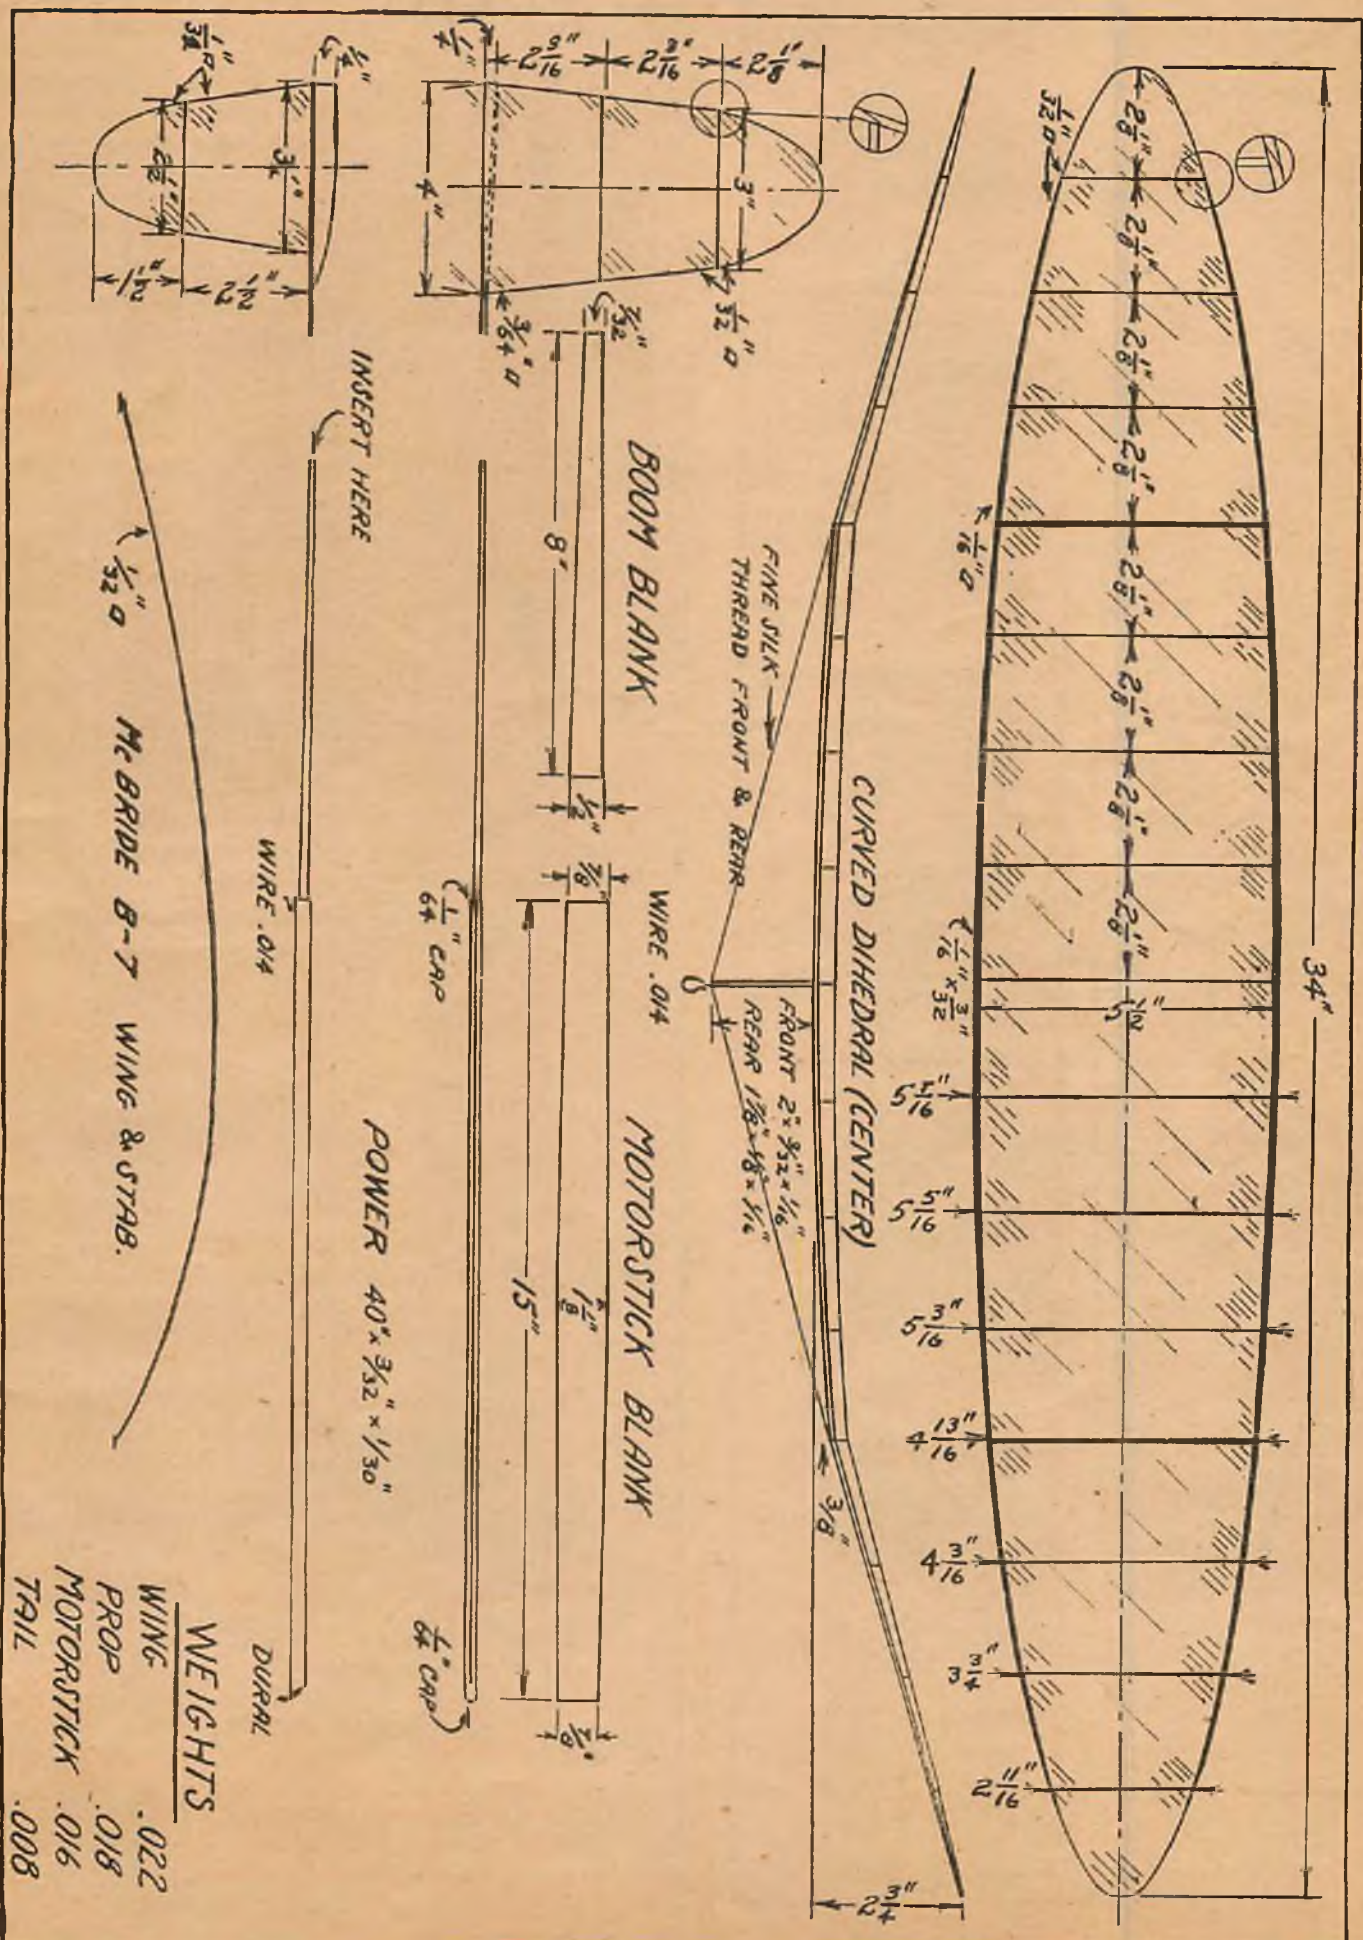 34"
2 1/8" 2 1/8" 2 1/8" 2 1/8" 2 1/8" 2 1/8" 2 1/8" 2 1/8"
5 1/2"
1/32" □
1/16" □
1/16" x 3/32"
5 5/16"
5 3/16"
4 13/16"
4 3/16"
3 3/4"
2 11/16"
CURVED DIHEDRAL (CENTER)
3/8"
2 3/4"
FINE SILK
THREAD FRONT & REAR
FRONT 2" x 3/32" x 1/16"
REAR 1 7/8" x 1/8" x 1/16"
WIRE .014
2 1/8"
2 5/16"
3"
4"
1/32" □
3/64" □
BOOM BLANK
7/32"
8"
1/2"
MOTORSTICK BLANK
7/8"
15"
1 1/8"
1/64" CAP
1/64" CAP
POWER 40" x 3/32" x 1/30"
1/4"
1/32" □
3 1/4"
2 1/2"
1 1/2"
2 1/2"
INSERT HERE
WIRE .014
DURAL
1/32" □
McBRIDE B-7 WING & STAB.
WEIGHTS
WING .022
PROP .018
MOTORSTICK .016
TAIL .008